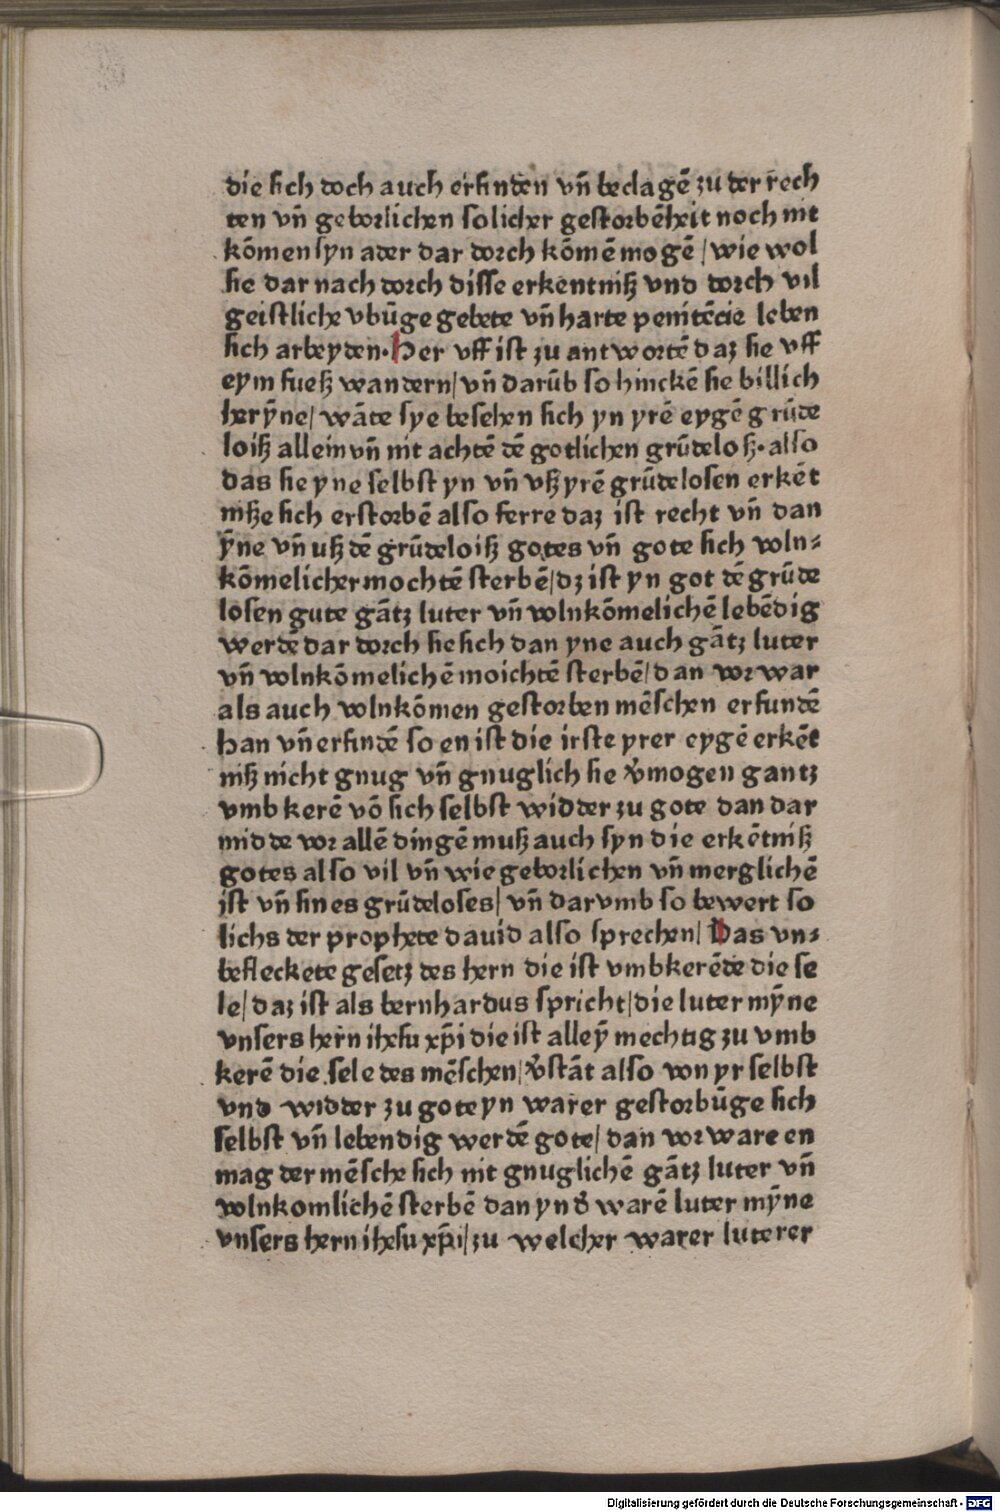 die sich doch auch erfinden vn̄ beclagē zu der rech
ten vn̄ geborlichen solicher gestorbēheit noch nit
kōmen syn ader dar dorch kōmē mogē / wie wol
sie dar nach dorch disse erkentniß vnd dorch vil
geistliche vbūge gebete vn̄ harte penitēcie leben
sich arbeyden. Her vff ist zu antwortē daz sie vff
eym fueß wandern / vn̄ darūb so hinckē sie billich
herȳne / wāte sye besehen sich yn yrē eygē grūde
loiß allein vn̄ nit achtē dē gotlichen grūdeloß. also
das sie yne selbst yn vn̄ vß yrē grūdelosen erkēt
niße sich erstorbē also ferre daz ist recht vn̄ dan
ȳne vn̄ uß dē grūdeloiß gotes vn̄ gote sich voln⸗
kōmelicher mochtē sterbē / dz ist yn got dē grūde
losen gute gātz luter vn̄ volnkōmelichē lebēdig
werdē dar dorch sie sich dan yne auch gātz luter
vn̄ volnkōmelichē moichtē sterbē / dan vor war
als auch volnkōmen gestorben mēschen erfundē
han vn̄ erfindē so en ist die irste yrer eygē erkēt
niß nicht gnug vn̄ gnuglich sie v̄mogen gantz
vmb kerē vō sich selbst widder zu gote dan dar
midde vor allē dingē muß auch syn die erkētniß
gotes also vil vn̄ wie geborlichen vn̄ merglichē
ist vn̄ sines grūdeloses / vn̄ darvmb so bewert so
lichs der prophete dauid also sprechen / Das vn⸗
befleckete gesetz des hern die ist vmbkerēde die se
le / daz ist als bernhardus spricht / die luter mȳne
vnsers hern ihesu xp̄i die ist alleȳ mechtig zu vmb
kerē die sele des mēschen / v̄stāt also von yr selbst
vnd widder zu gote yn warer gestorbūge sich
selbst vn̄ lebendig werdē gote / dan vor ware en
mag der mēsche sich nit gnuglichē gātz luter vn̄
volnkomlichē sterbē dan yn d̄ warē luter mȳne
vnsers hern ihesu xp̄i / zu welcher warer luterer
Digitalisierung gefördert durch die Deutsche Forschungsgemeinschaft - DFG